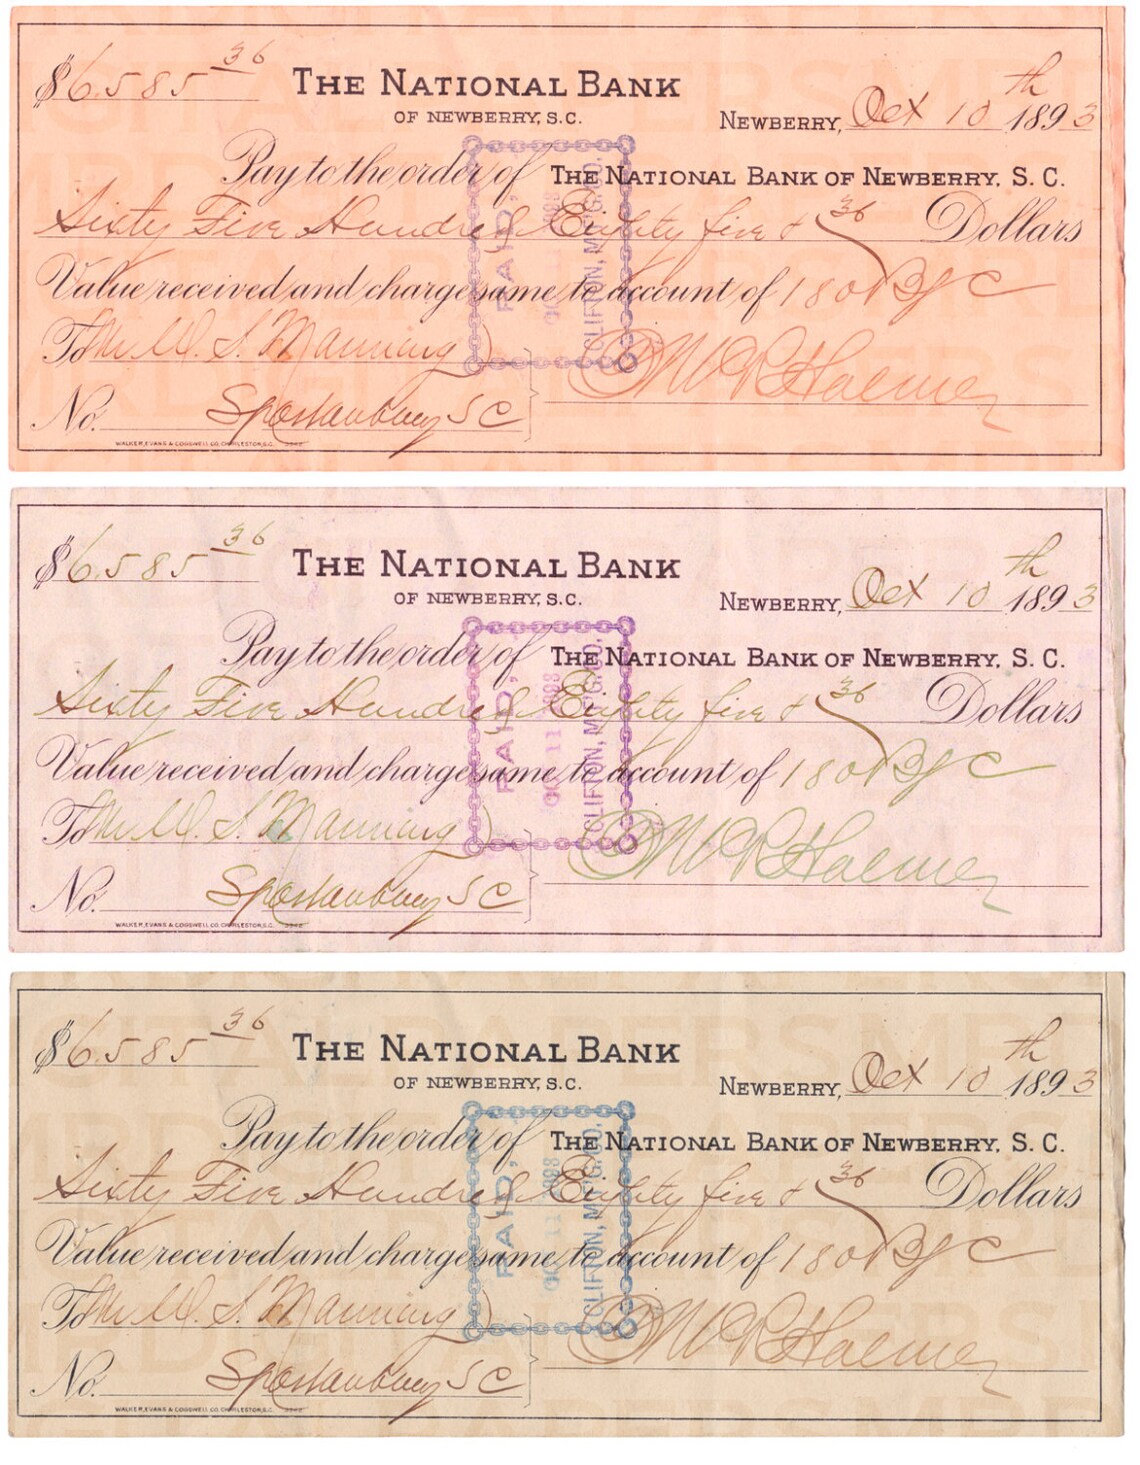 $6585 36
THE NATIONAL BANK
OF NEWBERRY, S.C.
NEWBERRY, Oct 10th 1893
Pay to the order of THE NATIONAL BANK OF NEWBERRY, S. C.
Sixty Five Hundred Eighty five & 36 Dollars
Value received and charge same to account of 180 B/C
To Mr W. S. Manning
No. Spartanburg S C
WALKER, EVANS & COGSWELL CO. CHARLESTON, S.C.
PAID,
CLIFTON, M'F'G. CO.
$6585 36
THE NATIONAL BANK
OF NEWBERRY, S.C.
NEWBERRY, Oct 10th 1893
Pay to the order of THE NATIONAL BANK OF NEWBERRY, S. C.
Sixty Five Hundred Eighty five & 36 Dollars
Value received and charge same to account of 180 B/C
To Mr W. S. Manning
No. Spartanburg S C
WALKER, EVANS & COGSWELL CO. CHARLESTON, S.C.
PAID,
OC 11 893
CLIFTON, M'F'G. CO.
$6585 36
THE NATIONAL BANK
OF NEWBERRY, S.C.
NEWBERRY, Oct 10th 1893
Pay to the order of THE NATIONAL BANK OF NEWBERRY, S. C.
Sixty Five Hundred Eighty five & 36 Dollars
Value received and charge same to account of 180 B/C
To Mr W. S. Manning
No. Spartanburg S C
WALKER, EVANS & COGSWELL CO. CHARLESTON, S.C.
PAID,
OC 11 893
CLIFTON, M'F'G. CO.